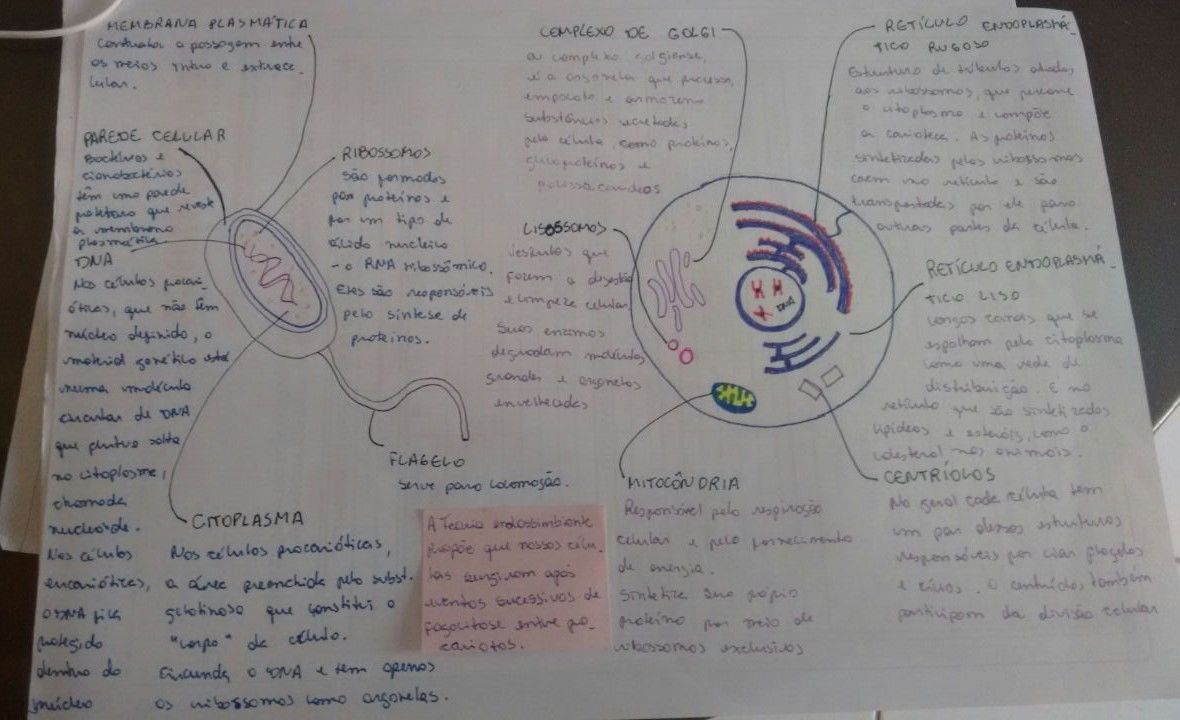 MEMBRANA PLASMÁTICA
Controlar a passagem entre
os meios intra e extrace
lular.
PAREDE CELULAR
Bactérias e
cianobactérias
têm uma parede
protetora que reveste
a membrana
plasmática
DNA
Nas células procari-
óticas, que não têm
núcleo definido, o
material genético está
numa molécula
circular de DNA
que flutua solta
no citoplasma,
chamada
nucleoide.
Nas células
eucarióticas,
o DNA fica
protegido
dentro do
núcleo
RIBOSSOMOS
São formados
por proteínas e
por um tipo de
ácido nucleico
- o RNA ribossômico.
Eles são responsáveis
pela síntese de
proteínas.
FLAGELO
Serve para locomoção.
CITOPLASMA
Nas células procarióticas,
a área preenchida pela subst.
gelatinosa que constitui o
"corpo" da célula.
Circunda o DNA e tem apenas
os ribossomos como organelas.
A Teoria endossimbionte
propõe que nossas célu-
las surgiram após
eventos sucessivos de
fagocitose entre pro-
cariotos.
COMPLEXO DE GOLGI
ou complexo golgiense,
é a organela que processa,
empacota e armazena
substâncias secretadas
pela célula, como proteínas,
glicoproteínas e
polissacarídeos
LISOSSOMOS
vesículas que
fazem a digestão
e limpeza celular.
Suas enzimas
degradam moléculas
grandes e organelas
envelhecidas
DNA
MITOCÔNDRIA
Responsável pela respiração
celular e pelo fornecimento
de energia.
Sintetiza sua própria
proteína por meio de
ribossomos exclusivos
RETÍCULO ENDOPLASMÁ-
TICO RUGOSO
Estrutura de túbulos atados
aos ribossomos, que percorre
o citoplasma e compõe
a carioteca. As proteínas
sintetizadas pelos ribossomos
caem no retículo e são
transportadas por ele para
outras partes da célula.
RETÍCULO ENDOPLASMÁ-
TICO LISO
Longos canais que se
espalham pelo citoplasma
como uma rede de
distribuição. É no
retículo que são sintetizados
lipídeos e esteróis, como o
colesterol nos animais.
CENTRÍOLOS
No geral cada célula tem
um par dessas estruturas
responsáveis por criar flagelos
e cílios. O centríolos também
participam da divisão celular